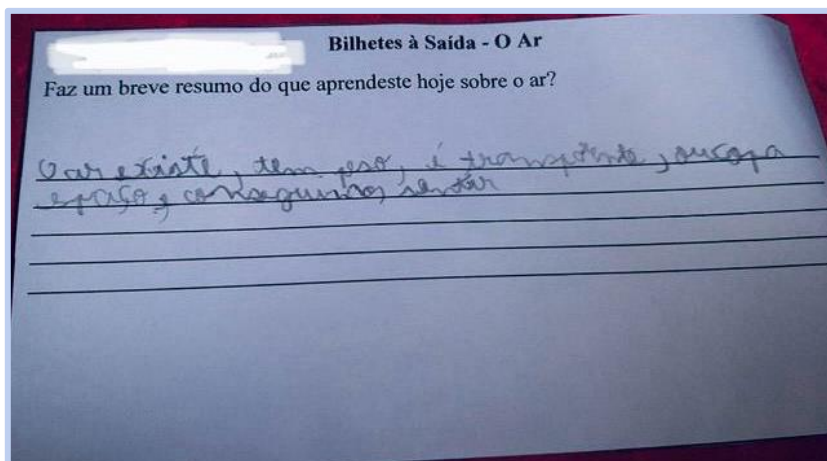 Bilhetes à Saída - O Ar
Faz um breve resumo do que aprendeste hoje sobre o ar?
O ar existe, tem peso, é transparente, oucopa
espaço, conseguimos sentir